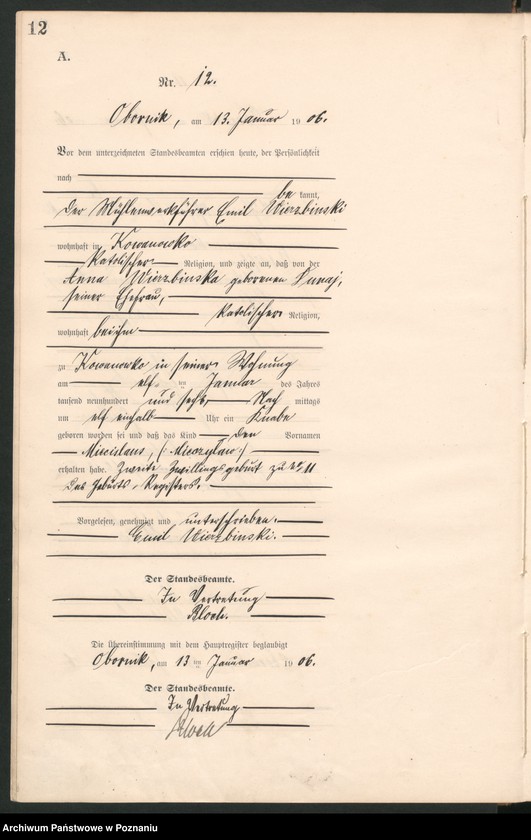 12
A.
Nr. 12.
Obornik, am 13. Januar 19 06.
Vor dem unterzeichneten Standesbeamten erschien heute, der Persönlichkeit
nach
be kannt,
der Mühlenwerkführer Emil Wierzbinski
wohnhaft in Kowanowko
Katolischer Religion, und zeigte an, daß von der
Anna Wierzbinska geborenen Dunaj,
seiner Ehefrau,
Katolischer Religion,
wohnhaft bei ihm
zu Kowanowko in seiner Wohnung
am elf ten Januar des Jahres
tausend neunhundert und sechs Nach mittags
um elf einhalb Uhr ein Knabe
geboren worden sei und daß das Kind den Vornamen
Miecislaus, (: Mieczyslaw :)
erhalten habe. Zweite Zwillingsgeburt zu Nr 11
des Geburts-Registers.
Vorgelesen, genehmigt und unterschrieben.
Emil Wierzbinski.
Der Standesbeamte.
In Vertretung
Bloch.
Die Übereinstimmung mit dem Hauptregister beglaubigt
Obornik, am 13 ten Januar 19 06.
Der Standesbeamte.
In Vertretung
Bloch
Archiwum Państwowe w Poznaniu